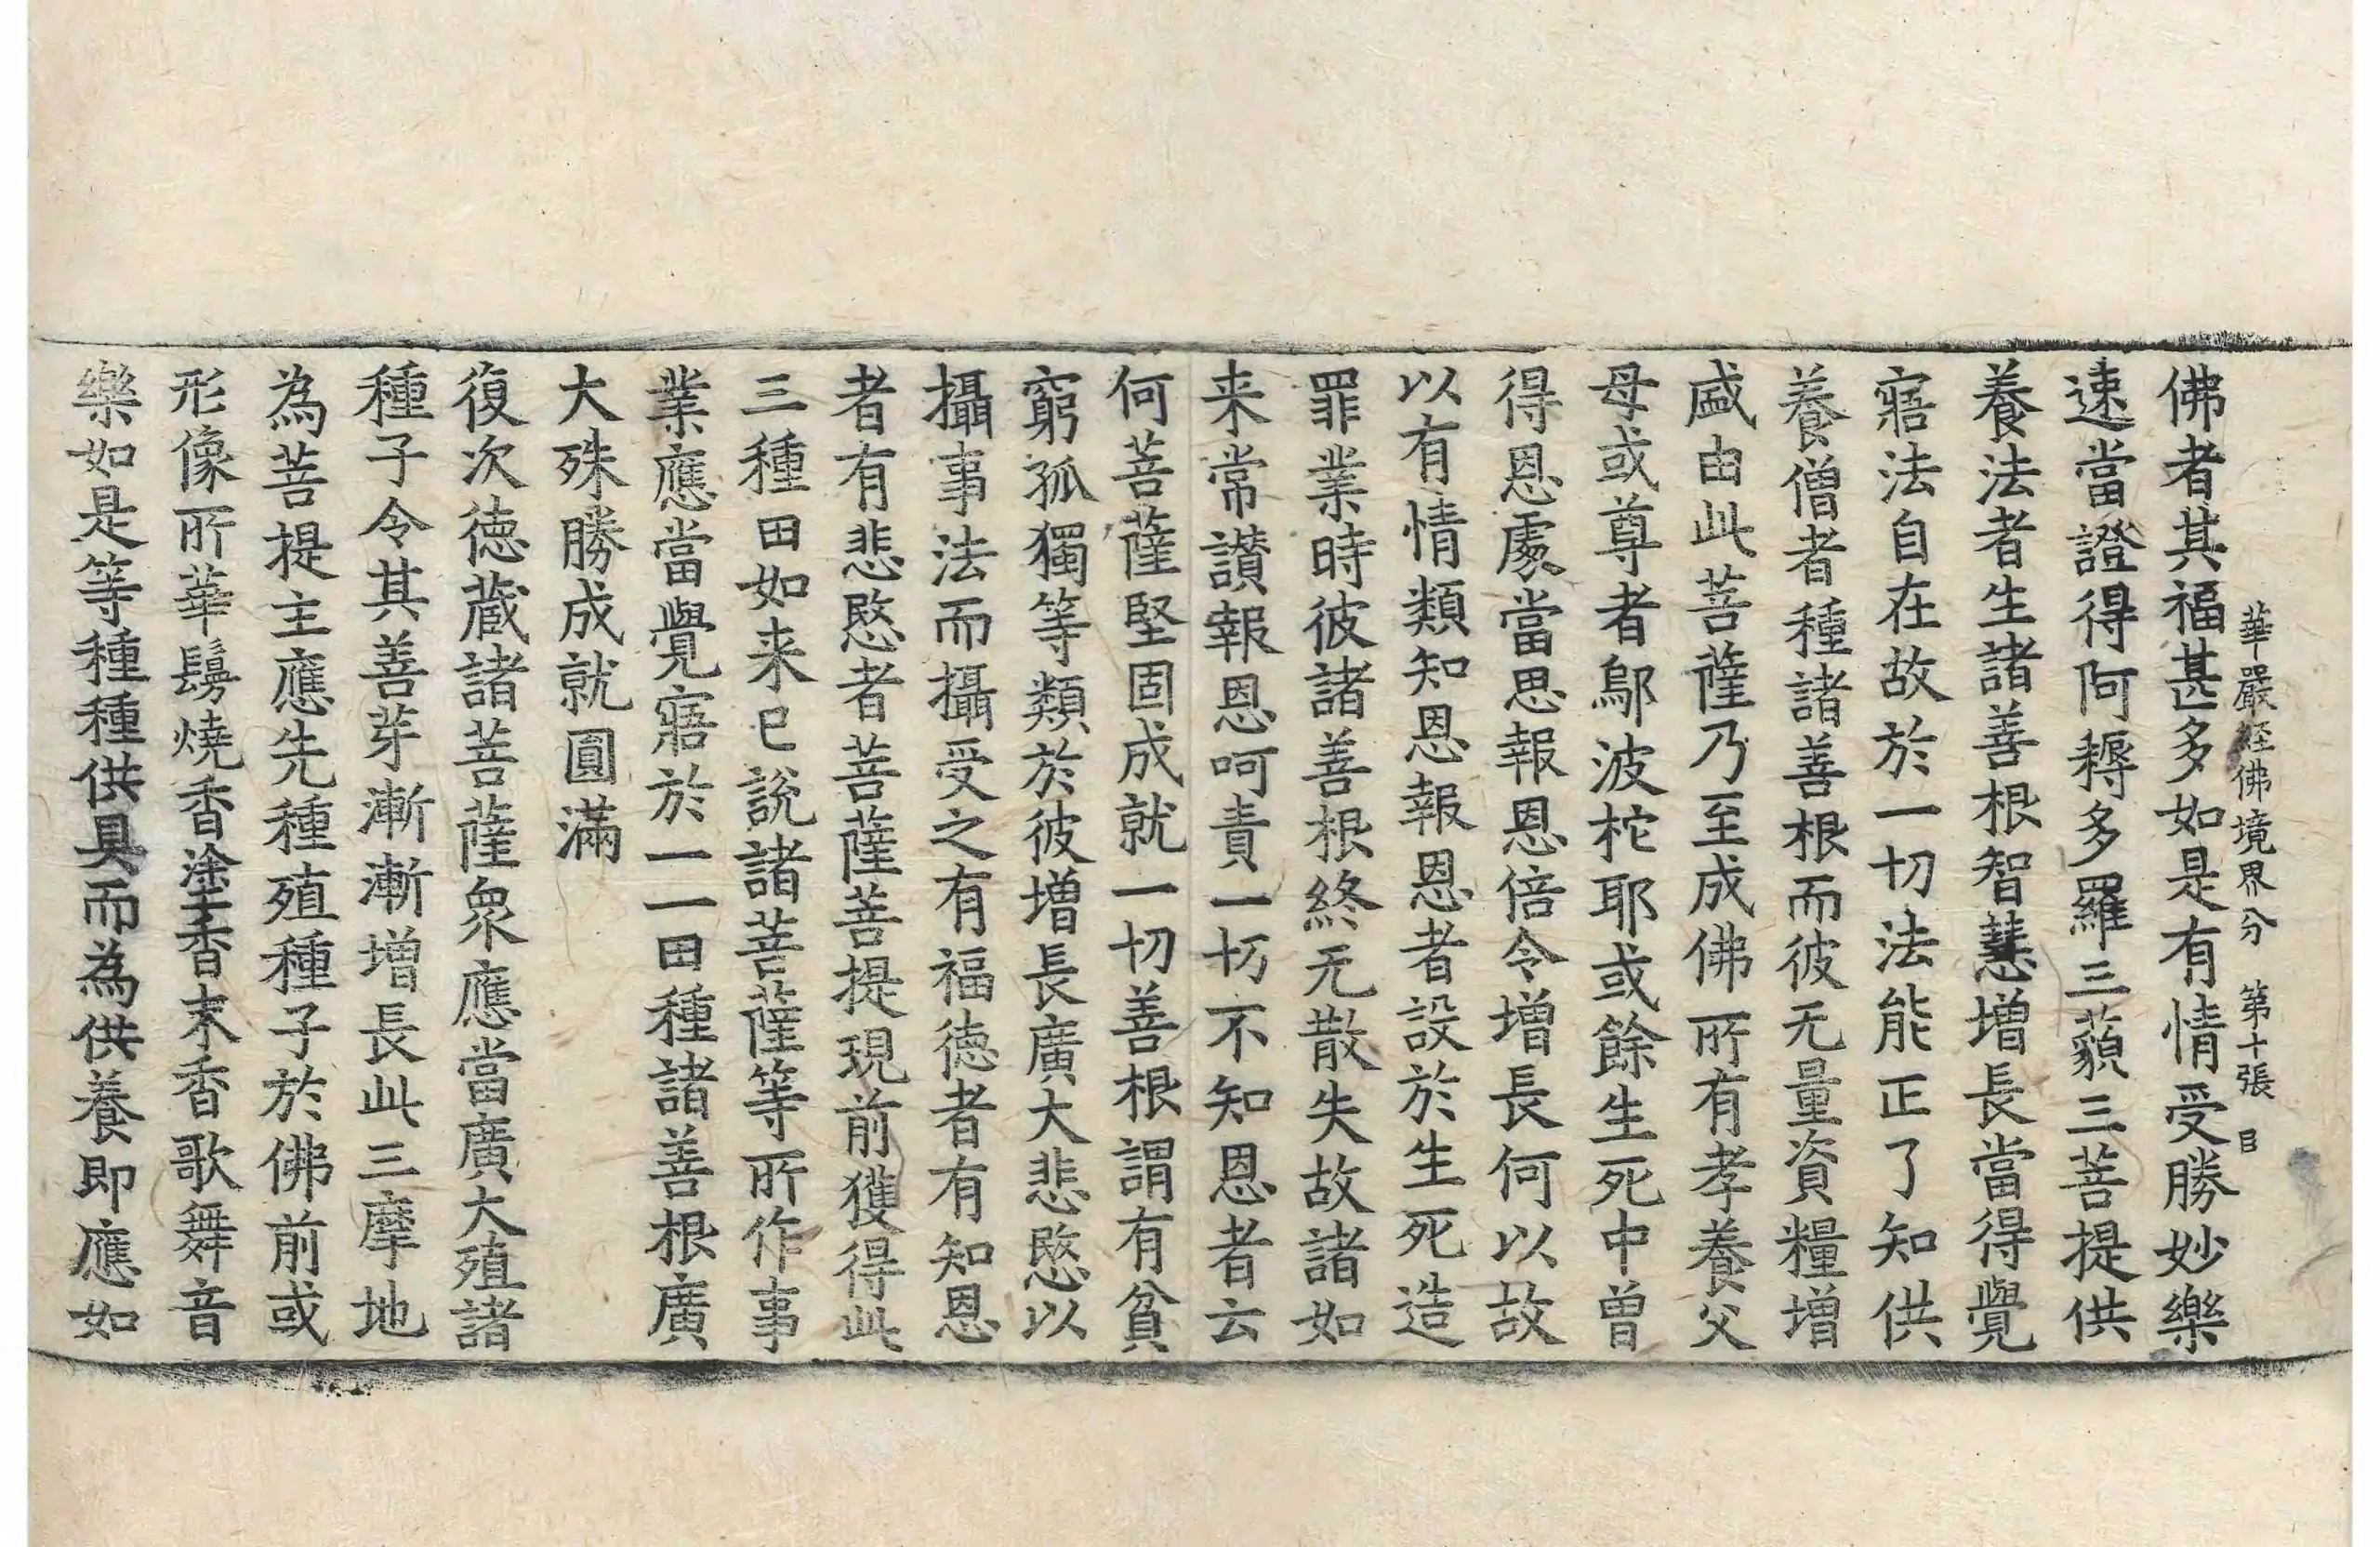 華嚴經佛境界分　第十張　㠯
佛者其福甚多如是有情受勝妙樂
速當證得阿耨多羅三藐三菩提供
養法者生諸善根智慧增長當得覺
寤法自在故於一切法能正了知供
養僧者種諸善根而彼无量資糧增
盛由此菩薩乃至成佛所有孝養父
母或尊者鄔波柁耶或餘生死中曾
得恩處當思報恩倍令增長何以故
以有情類知恩報恩者設於生死造
罪業時彼諸善根終无散失故諸如
来常讃報恩呵責一切不知恩者云
何菩薩堅固成就一切善根謂有貧
窮孤獨等類於彼增長廣大悲愍以
攝事法而攝受之有福德者有知恩
者有悲愍者菩薩菩提現前獲得此
三種田如来已說諸菩薩等所作事
業應當覺寤於一一田種諸善根廣
大殊勝成就圓滿
復次德蔵諸菩薩衆應當廣大殖諸
種子令其善芽漸漸增長此三摩地
為菩提主應先種殖種子於佛前或
形像所華鬘燒香塗香末香歌舞音
樂如是等種種供具而為供養即應如